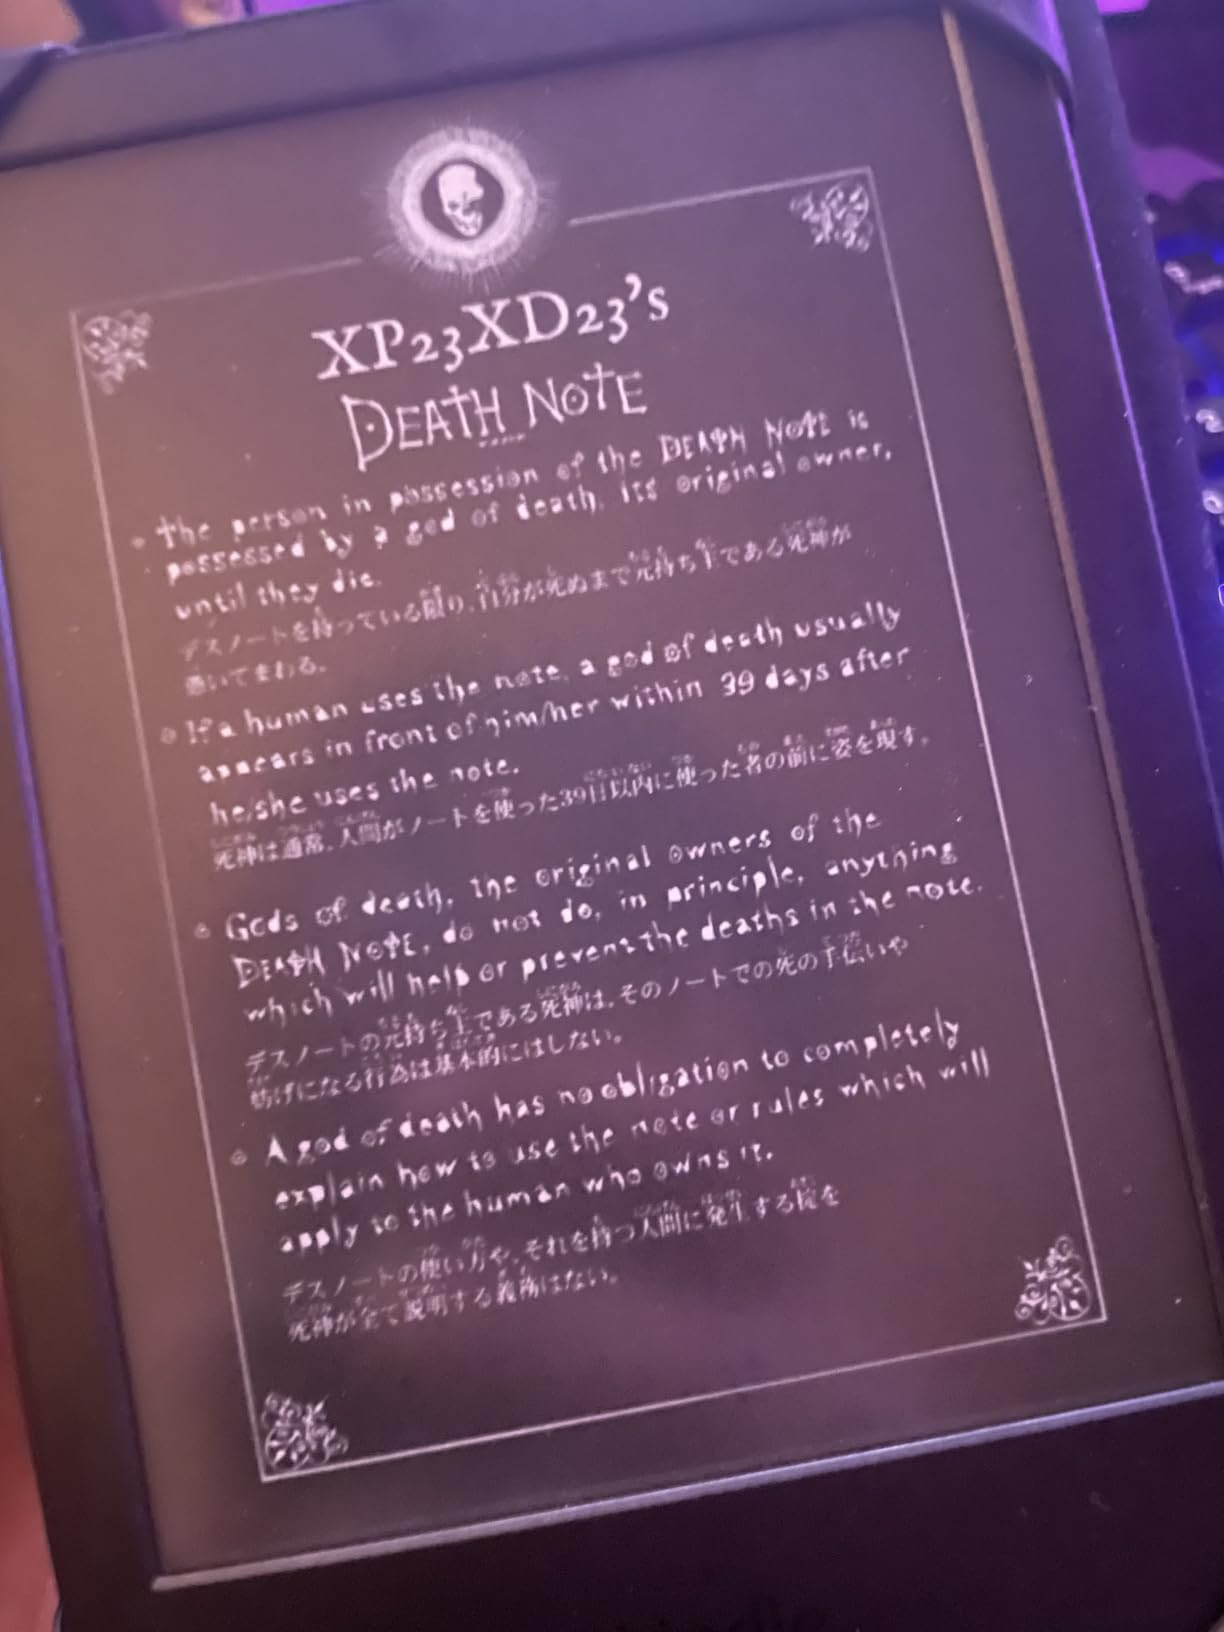 XP23XD23's
DEATH NOTE
The person in possession of the DEATH NOTE is
possessed by a god of death, its original owner,
until they die.
デスノートを持っている限り、自分が死ぬまで元持ち主である死神が
憑いてまわる。
If a human uses the note, a god of death usually
appears in front of him/her within 39 days after
he/she uses the note.
死神は通常、人間がノートを使った39日以内に使った者の前に姿を現す。
Gods of death, the original owners of the
DEATH NOTE, do not do, in principle, anything
which will help or prevent the deaths in the note.
デスノートの元持ち主である死神は、そのノートでの死の手伝いや
妨げになる行為は基本的にはしない。
A god of death has no obligation to completely
explain how to use the note or rules which will
apply to the human who owns it.
デスノートの使い方や、それを持つ人間に発生する掟を
死神が全て説明する義務はない。